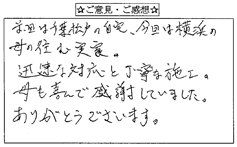 ☆ご意見・ご感想☆
前回は千葉松戸の自宅、今回は横浜の
母の住む実家。
迅速な対応と丁寧な施工。
母も喜んで感謝していました。
ありがとうございます。